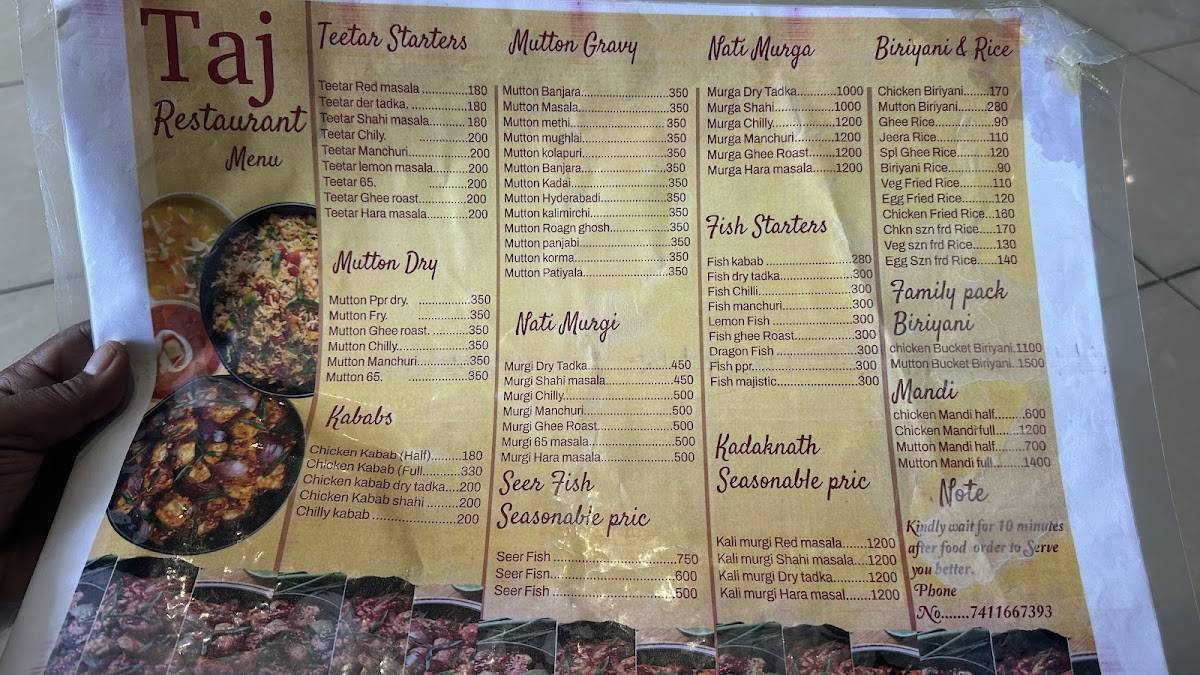 Taj
Restaurant
Menu
Teetar Starters
Teetar Red masala ..............180
Teetar der tadka. ..................180
Teetar Shahi masala............ 180
Teetar Chily. ..............200
Teetar Manchuri..................200
Teetar lemon masala...........200
Teetar 65. ..................200
Teetar Ghee roast..............200
Teetar Hara masala............200
Mutton Dry
Mutton Ppr dry. ...............350
Mutton Fry. ...............350
Mutton Ghee roast. ...........350
Mutton Chilly.....................350
Mutton Manchuri...............350
Mutton 65. .................350
Kababs
Chicken Kabab (Half).........180
Chicken Kabab (Full...........330
Chicken kabab dry tadka....200
Chicken Kabab shahi .........200
Chilly kabab .......................200
Mutton Gravy
Mutton Banjara..........................350
Mutton Masala...........................350
Mutton methi.............................350
Mutton mughlai.........................350
Mutton kolapuri.........................350
Mutton Banjara..........................350
Mutton Kadai.............................350
Mutton Hyderabadi....................350
Mutton kalimirchi.......................350
Mutton Roagn ghosh..................350
Mutton panjabi...........................350
Mutton korma............................350
Mutton Patiyala..........................350
Nati Murgi
Murgi Dry Tadka.....................450
Murgi Shahi masala.................450
Murgi Chilly............................500
Murgi Manchuri.......................500
Murgi Ghee Roast....................500
Murgi 65 masala......................500
Murgi Hara masala...................500
Seer Fish
Seasonable pric
Seer Fish ....................................750
Seer Fisn.....................................600
Seer Fish ....................................500
Nati Murga
Murga Dry Tadka..........1000
Murga Shahi...............1000
Murga Chilly...............1200
Murga Manchuri..........1200
Murga Ghee Roast.......1200
Murga Hara masala......1200
Fish Starters
Fish kabab .....................280
Fish dry tadka.................300
Fish Chilli.......................300
Fish manchuri.................300
Lemon Fish ....................300
Fish ghee Roast...............300
Dragon Fish ....................300
Fish ppr..........................300
Fish majistic...................300
Kadaknath
Seasonable pric
Kali murgi Red masala.......1200
Kali murgi Shahi masala....1200
Kali murgi Dry tadka.........1200
Kali murgi Hara masal.......1200
Biriyani & Rice
Chicken Biriyani.......170
Mutton Biriyani........280
Ghee Rice................90
Jeera Rice................110
Spl Ghee Rice..........120
Biriyani Rice............90
Veg Fried Rice.........110
Egg Fried Rice.........120
Chicken Fried Rice...160
Chkn szn frd Rice.....170
Veg szn frd Rice.......130
Egg Szn frd Rice......140
Family pack
Biriyani
chicken Bucket Biriyani..1100
Mutton Bucket Biriyani..1500
Mandi
chicken Mandi half.........600
Chicken Mandi full.......1200
Mutton Mandi half........700
Mutton Mandi full........1400
Note
Kindly wait for 10 minutes
after food order to Serve
you better.
Phone
No.......7411667393